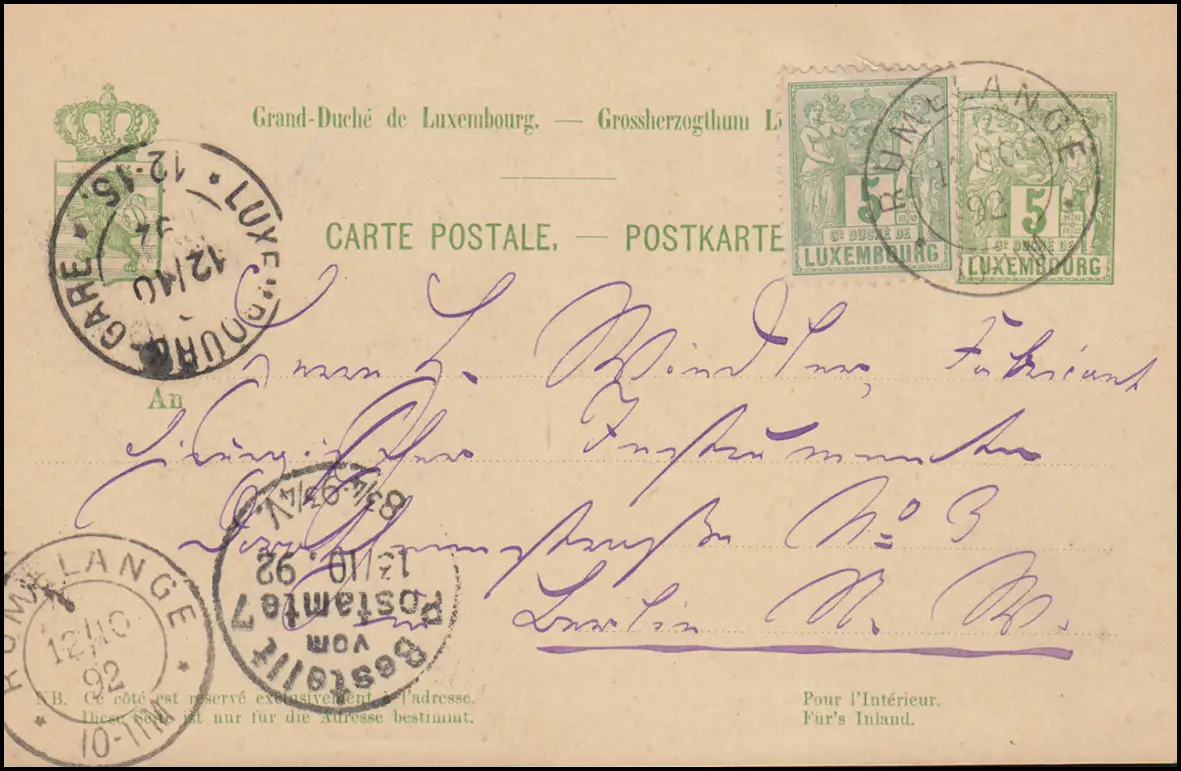 Grand-Duché de Luxembourg. — Grossherzogthum L
CARTE POSTALE. — POSTKARTE
5
Gd DUCHÉ DE
LUXEMBOURG
5
Gd DUCHÉ DE
LUXEMBOURG
RUMELANGE
92
LUXEMBOURG GARE
12·15.
12/10
An
Herrn H. Windler, Fabricant
Instrumente
Dorotheenstraße No 3
Berlin N. W.
Bestellt
vom
Postamte 7
13/10 92
8¾-9¾V.
RUMELANGE
12/10
92
10-11M
NB. Ce côté est réservé exclusivement à l'adresse.
Diese Seite ist nur für die Adresse bestimmt.
Pour l'Intérieur.
Für's Inland.